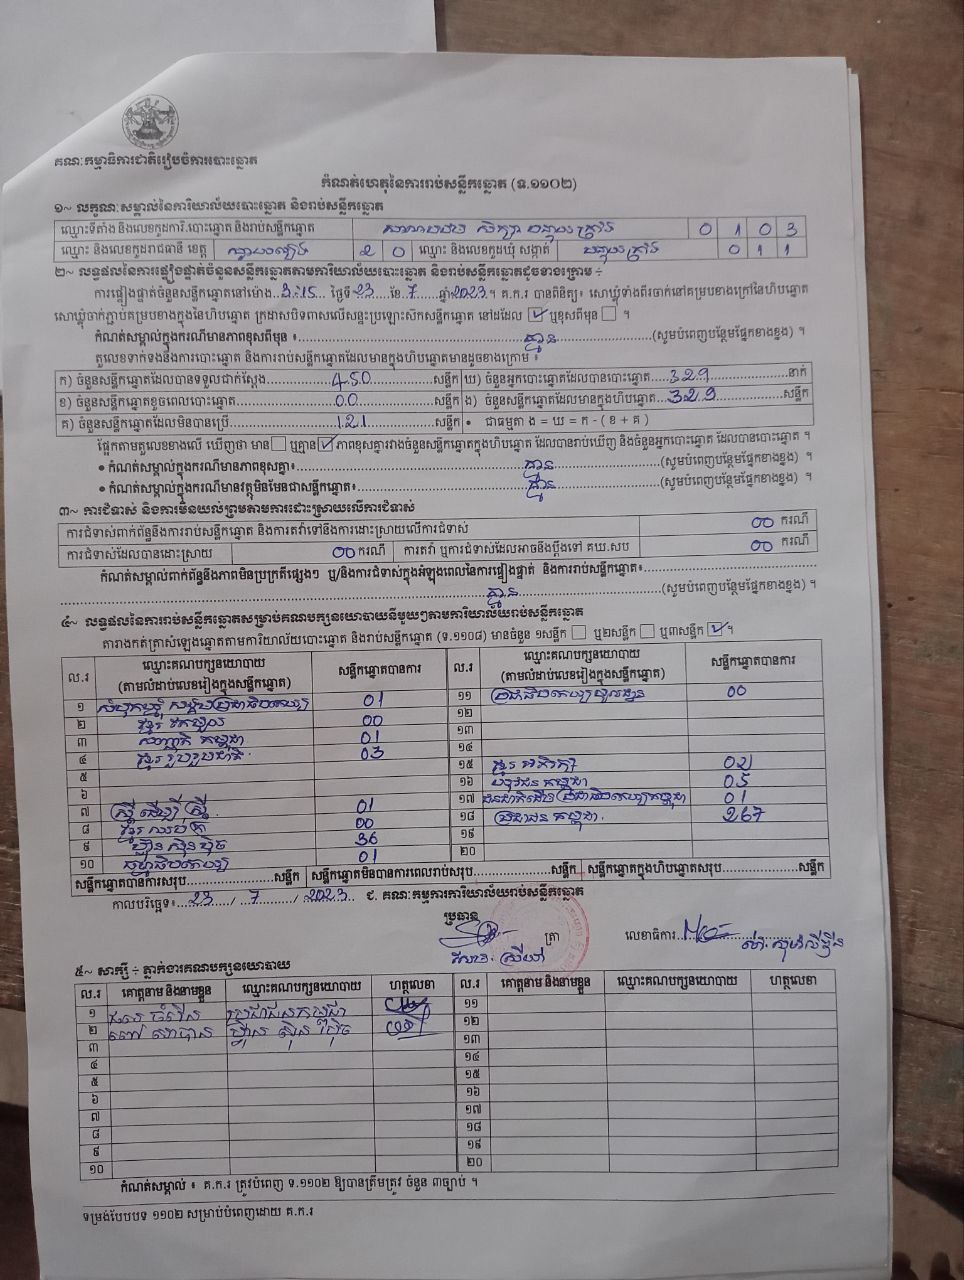 គណៈកម្មាធិការជាតិរៀបចំការបោះឆ្នោត
កំណត់ហេតុនៃការរាប់សន្លឹកឆ្នោត (ទ.១១០២)
១~ លក្ខណៈសម្គាល់នៃការិយាល័យបោះឆ្នោត និងរាប់សន្លឹកឆ្នោត
ឈ្មោះទីតាំង និងលេខកូដការិ.បោះឆ្នោត និងរាប់សន្លឹកឆ្នោត 0 1 0 3
ឈ្មោះ និងលេខកូដរាជធានី ខេត្ត ស្វាយរៀង 2 0 ឈ្មោះ និងលេខកូដឃុំ សង្កាត់ 0 1 1
២~ លទ្ធផលនៃការផ្ទៀងផ្ទាត់ចំនួនសន្លឹកឆ្នោតតាមការិយាល័យបោះឆ្នោត និងរាប់សន្លឹកឆ្នោតដូចខាងក្រោម ÷
ការផ្ទៀងផ្ទាត់ចំនួនសន្លឹកឆ្នោតនៅម៉ោង..3:15... ថ្ងៃទី..23...ខែ..7......ឆ្នាំ2023។ គ.ក.រ បានពិនិត្យ៖ សោឃ្លុំទាំងពីរចាក់នៅគម្របខាងក្រៅនៃហិបឆ្នោត
សោឃ្លុំចាក់ភ្ជាប់គម្របខាងក្នុងនៃហិបឆ្នោត ក្រដាសបិទពាសលើសន្ទះប្រឡោះស៊កសន្លឹកឆ្នោត នៅដដែល ☑ ឬខុសពីមុន ☐ ។
កំណត់សម្គាល់ក្នុងករណីមានភាពខុសពីមុន ៖ គ្មាន (សូមបំពេញបន្ថែមផ្នែកខាងខ្នង) ។
តួលេខទាក់ទងនឹងការបោះឆ្នោត និងការរាប់សន្លឹកឆ្នោតដែលមានក្នុងហិបឆ្នោតមានដូចខាងក្រោម ៖
ក) ចំនួនសន្លឹកឆ្នោតដែលបានទទួលជាក់ស្តែង 450 សន្លឹក ឃ) ចំនួនអ្នកបោះឆ្នោតដែលបានបោះឆ្នោត 329 នាក់
ខ) ចំនួនសន្លឹកឆ្នោតខូចពេលបោះឆ្នោត 00 សន្លឹក ង) ចំនួនសន្លឹកឆ្នោតដែលមានក្នុងហិបឆ្នោត 329 សន្លឹក
គ) ចំនួនសន្លឹកឆ្នោតដែលមិនបានប្រើ 121 សន្លឹក • ជាធម្មតា ង = ឃ = ក - ( ខ + គ )
ផ្អែកតាមតួលេខខាងលើ ឃើញថា មាន ☐ ឬគ្មាន ☑ ភាពខុសគ្នារវាងចំនួនសន្លឹកឆ្នោតក្នុងហិបឆ្នោត ដែលបានរាប់ឃើញ និងចំនួនអ្នកបោះឆ្នោត ដែលបានបោះឆ្នោត ។
• កំណត់សម្គាល់ក្នុងករណីមានភាពខុសគ្នា៖ គ្មាន (សូមបំពេញបន្ថែមផ្នែកខាងខ្នង) ។
• កំណត់សម្គាល់ក្នុងករណីមានវត្ថុមិនមែនជាសន្លឹកឆ្នោត៖ គ្មាន (សូមបំពេញបន្ថែមផ្នែកខាងខ្នង) ។
៣~ ការជំទាស់ និងការមិនយល់ព្រមតាមការដោះស្រាយលើការជំទាស់
ការជំទាស់ពាក់ព័ន្ធនឹងការរាប់សន្លឹកឆ្នោត និងការតវ៉ាទៅនឹងការដោះស្រាយលើការជំទាស់ 00 ករណី
ការជំទាស់ដែលបានដោះស្រាយ 00 ករណី ការតវ៉ា ឬការជំទាស់ដែលអាចនឹងប្តឹងទៅ គឃ.សប 00 ករណី
កំណត់សម្គាល់ពាក់ព័ន្ធនឹងភាពមិនប្រក្រតីផ្សេងៗ ឬ/និងការជំទាស់ក្នុងអំឡុងពេលនៃការផ្ទៀងផ្ទាត់ និងការរាប់សន្លឹកឆ្នោត៖
គ្មាន (សូមបំពេញបន្ថែមផ្នែកខាងខ្នង) ។
៤~ លទ្ធផលនៃការរាប់សន្លឹកឆ្នោតសម្រាប់គណបក្សនយោបាយនីមួយៗតាមការិយាល័យរាប់សន្លឹកឆ្នោត
តារាងកត់ត្រាសំឡេងឆ្នោតតាមការិយាល័យបោះឆ្នោត និងរាប់សន្លឹកឆ្នោត (ទ.១១០៨) មានចំនួន ១សន្លឹក ☐ ឬ២សន្លឹក ☐ ឬ៣សន្លឹក ☑ ។
ល.រ ឈ្មោះគណបក្សនយោបាយ (តាមលំដាប់លេខរៀងក្នុងសន្លឹកឆ្នោត) សន្លឹកឆ្នោតបានការ ល.រ ឈ្មោះគណបក្សនយោបាយ (តាមលំដាប់លេខរៀងក្នុងសន្លឹកឆ្នោត) សន្លឹកឆ្នោតបានការ
១ សំបុកឃ្មុំសង្គមប្រជាធិបតេយ្យ 01 ១១ ប្រជាធិបតេយ្យមូលដ្ឋាន 00
២ ខ្មែរឯកភាព 00 ១២
៣ សញ្ជាតិកម្ពុជា 01 ១៣
៤ ខ្មែររួបរួមជាតិ 03 ១៤
៥ ១៥ ខ្មែរអភិរក្ស 02
៦ ១៦ យុវជនកម្ពុជា 05
៧ ស្ត្រីដើម្បីស្ត្រី 01 ១៧ ជនជាតិដើមប្រជាធិបតេយ្យកម្ពុជា 01
៨ ខ្មែរឈប់ក្រ 00 ១៨ ប្រជាជនកម្ពុជា 267
៩ ហ៊្វុនស៊ិនប៉ិច 36 ១៩
១០ ធម្មាធិបតេយ្យ 01 ២០
សន្លឹកឆ្នោតបានការសរុប សន្លឹក សន្លឹកឆ្នោតមិនបានការពេលរាប់សរុប សន្លឹក សន្លឹកឆ្នោតក្នុងហិបឆ្នោតសរុប សន្លឹក
កាលបរិច្ឆេទ៖ 23 / 7 / 2023 ជ. គណៈកម្មការការិយាល័យរាប់សន្លឹកឆ្នោត
ប្រធាន
ត្រា លេខាធិការ
៥~ សាក្សី ÷ ភ្នាក់ងារគណបក្សនយោបាយ
ល.រ គោត្តនាម និងនាមខ្លួន ឈ្មោះគណបក្សនយោបាយ ហត្ថលេខា ល.រ គោត្តនាម និងនាមខ្លួន ឈ្មោះគណបក្សនយោបាយ ហត្ថលេខា
១ ប្រជាជនកម្ពុជា ១១
២ ហ៊្វុនស៊ិនប៉ិច ១២
៣ ១៣
៤ ១៤
៥ ១៥
៦ ១៦
៧ ១៧
៨ ១៨
៩ ១៩
១០ ២០
កំណត់សម្គាល់ ៖ គ.ក.រ ត្រូវបំពេញ ទ.១១០២ ឱ្យបានត្រឹមត្រូវ ចំនួន ៣ច្បាប់ ។
ទម្រង់បែបបទ ១១០២ សម្រាប់បំពេញដោយ គ.ក.រ